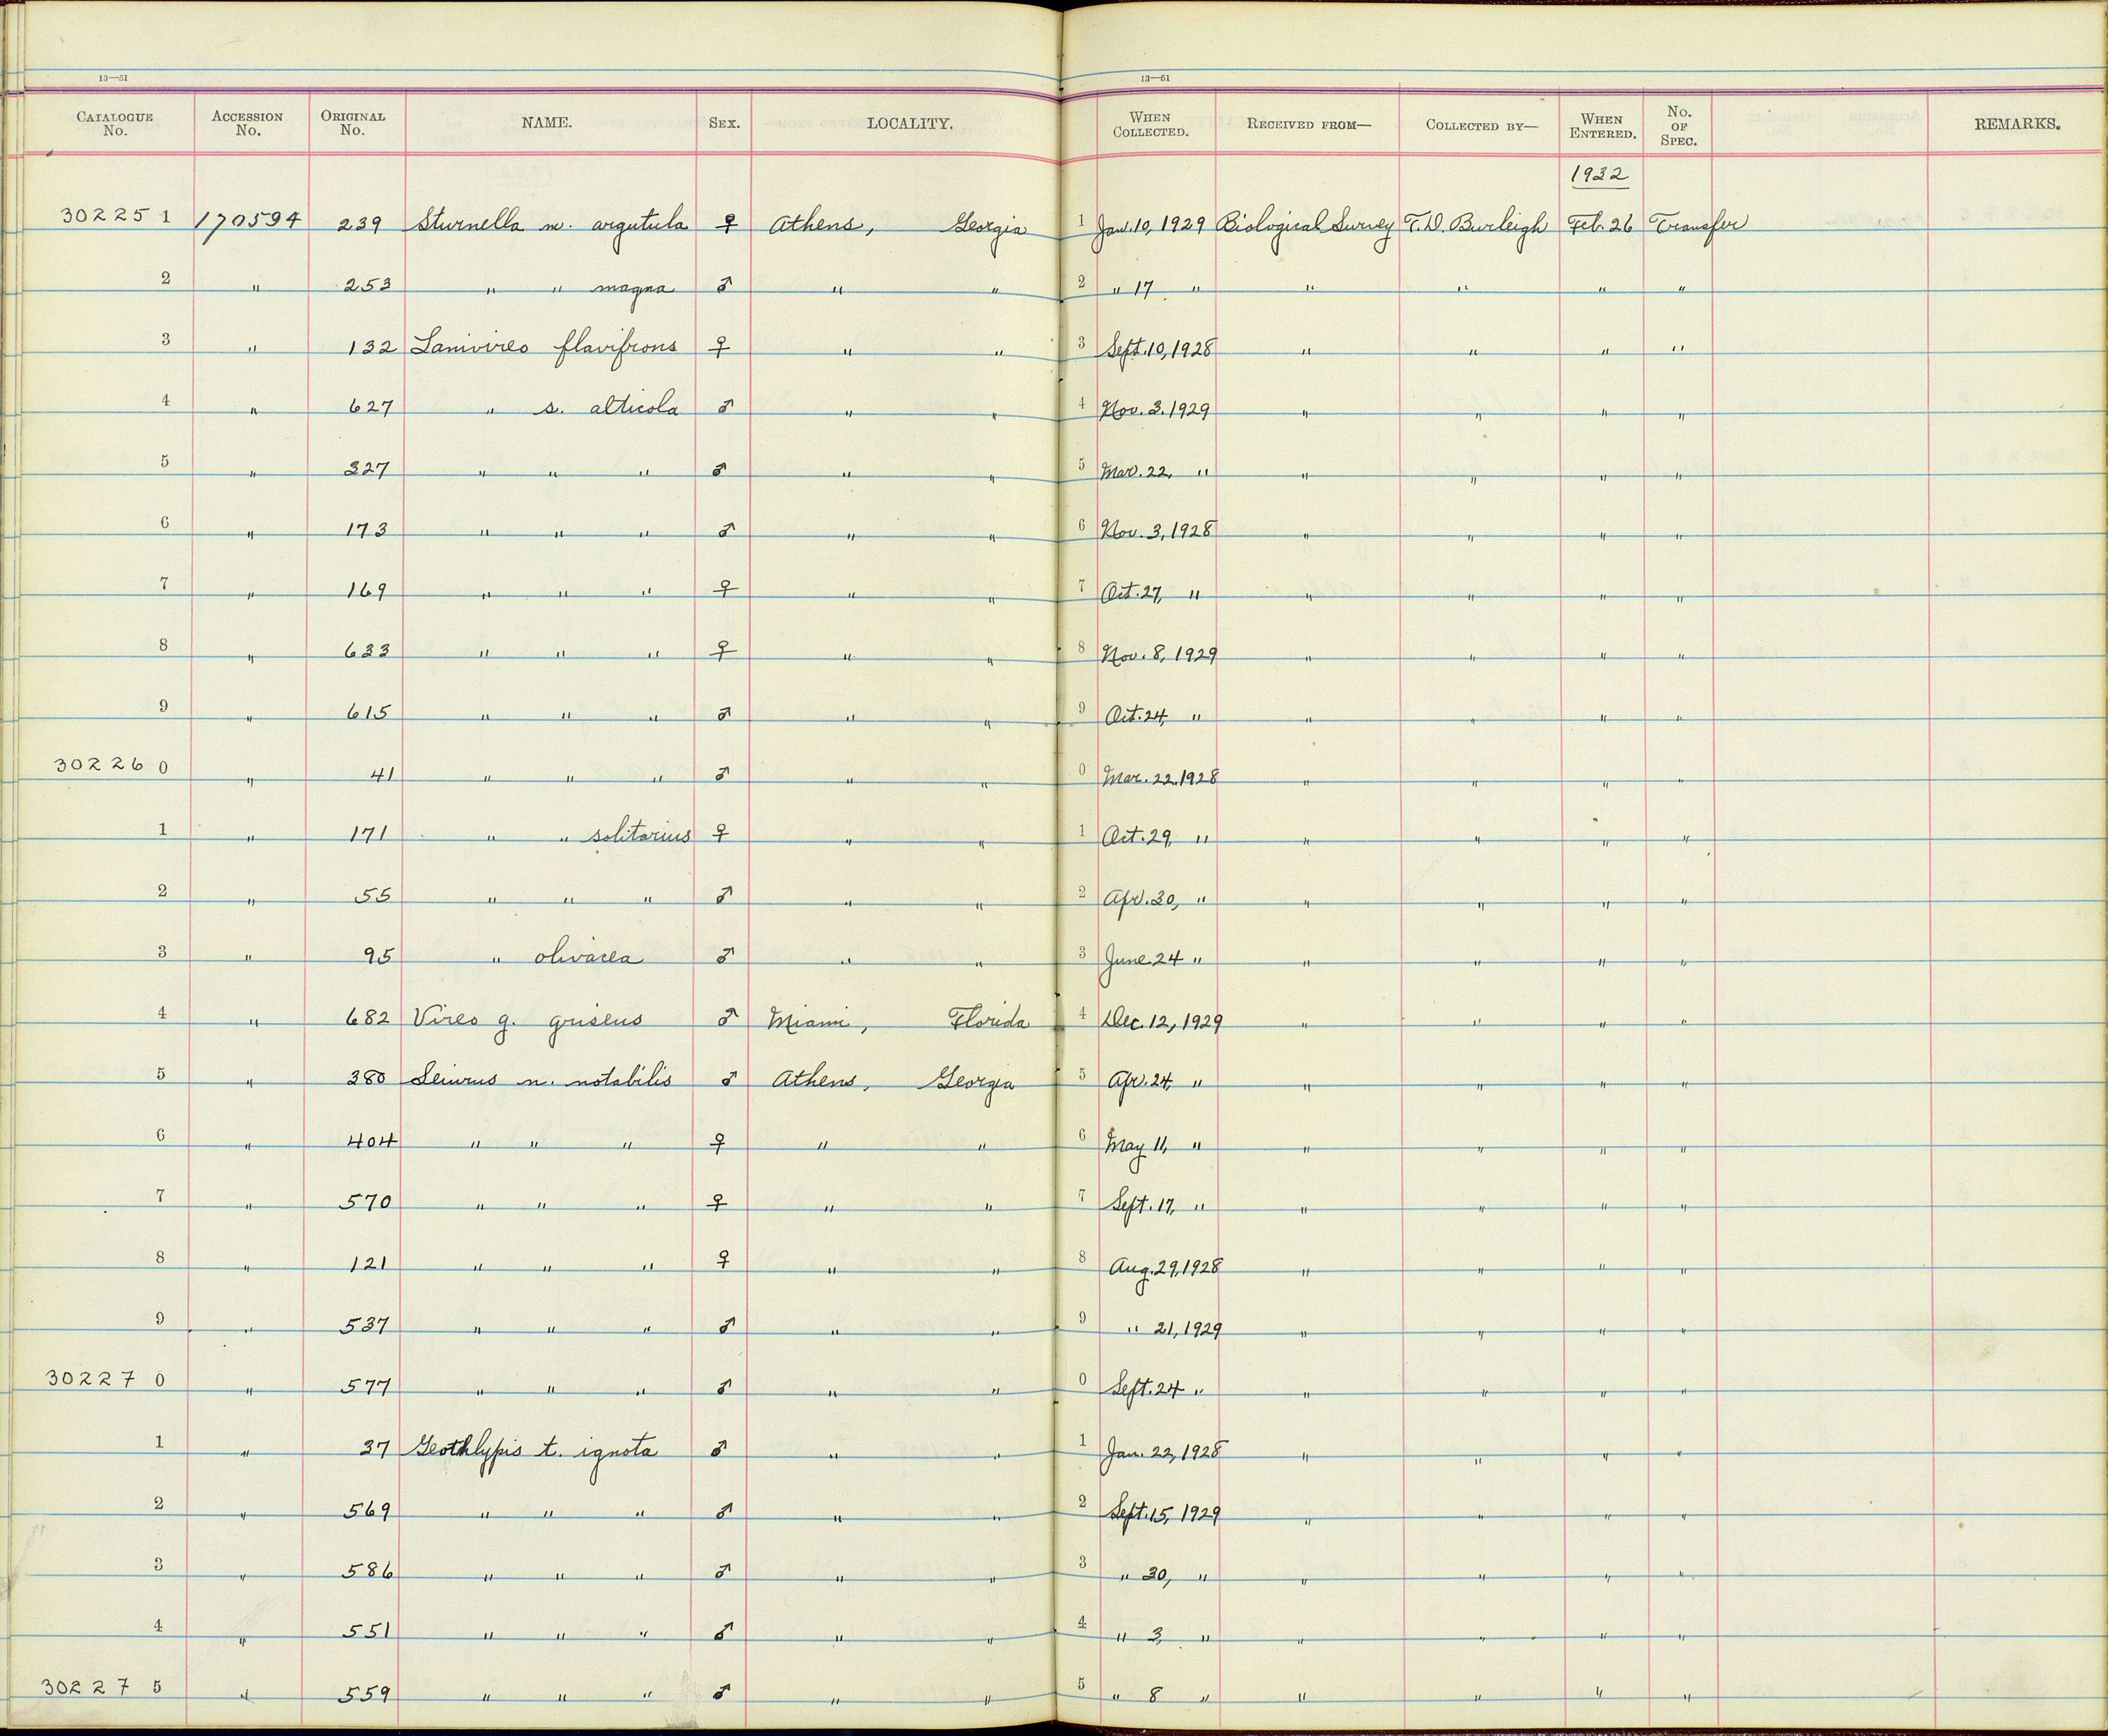 13—51 13—51
CATALOGUE No. ACCESSION No. ORIGINAL No. NAME. SEX. LOCALITY. WHEN COLLECTED. RECEIVED FROM— COLLECTED BY— WHEN ENTERED. No. OF SPEC. REMARKS.
1932
302251 170594 239 Sturnella m. argutula ♀ Athens, Georgia 1 Jan. 10, 1929 Biological Survey T.D. Burleigh Feb. 26 Transfer
2 " 253 " " magna ♂ " " 2 " 17 " " " " "
3 " 132 Lanivireo flavifrons ♀ " " 3 Sept. 10, 1928 " " " "
4 " 627 " s. alticola ♂ " " 4 Nov. 3. 1929 " " " "
5 " 327 " " " ♂ " " 5 Mar. 22, " " " " "
6 " 173 " " " ♂ " " 6 Nov. 3, 1928 " " " "
7 " 169 " " " ♀ " " 7 Oct. 27, " " " " "
8 " 633 " " " ♀ " " 8 Nov. 8, 1929 " " " "
9 " 615 " " " ♂ " " 9 Oct. 24, " " " " "
302260 " 41 " " " ♂ " " 0 Mar. 22. 1928 " " " "
1 " 171 " " solitarius ♀ " " 1 Oct. 29, " " " " "
2 " 55 " " " ♂ " " 2 Apr. 30, " " " " "
3 " 95 " olivacea ♂ " " 3 June 24 " " " " "
4 " 682 Vireo g. griseus ♂ Miami, Florida 4 Dec. 12, 1929 " " " "
5 " 380 Seiurus n. notabilis ♂ Athens, Georgia 5 Apr. 24, " " " " "
6 " 404 " " " ♀ " " 6 May 11, " " " " "
7 " 570 " " " ♀ " " 7 Sept. 17, " " " " "
8 " 121 " " " ♀ " " 8 Aug. 29, 1928 " " " "
9 " 537 " " " ♂ " " 9 " 21, 1929 " " " "
302270 " 577 " " " ♂ " " 0 Sept. 24 " " " " "
1 " 37 Geothlypis t. ignota ♂ " " 1 Jan. 22, 1928 " " " "
2 " 569 " " " ♂ " " 2 Sept. 15, 1929 " " " "
3 " 586 " " " ♂ " " 3 " 30, " " " " "
4 " 551 " " " ♂ " " 4 " 3, " " " " "
302275 " 559 " " " ♂ " " 5 " 8 " " " " "